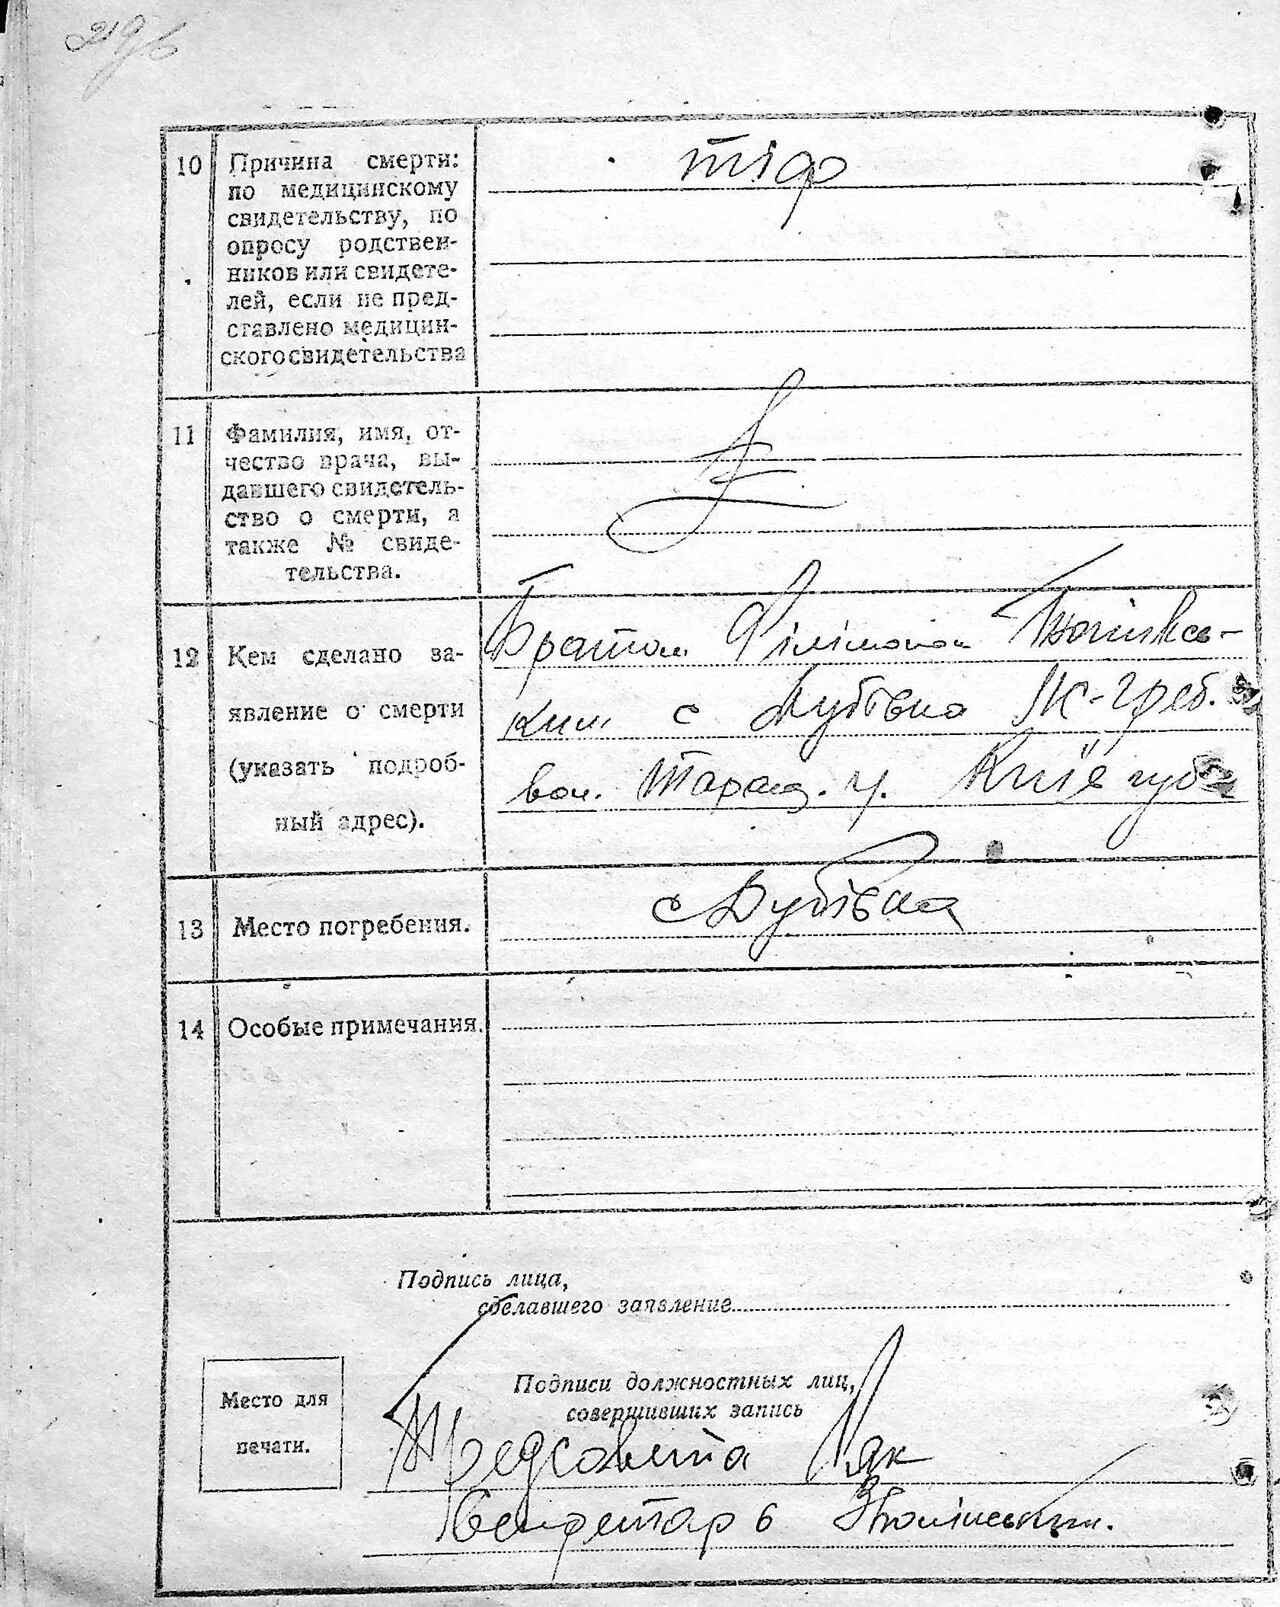 10 Причина смерти:
по медицинскому
свидетельству, по
опросу родствен-
ников или свидете-
лей, если не пред-
ставлено медицин-
ского свидетельства
тіф
11 Фамилия, имя, от-
чество врача, вы-
давшего свидетель-
ство о смерти, а
также № свиде-
тельства.
12 Кем сделано за-
явление о смерти
(указать подроб-
ный адрес).
Братом Філімоном
ким с Дубівка Ж-Греб.
вол. Таращ. у. Київ губ
13 Место погребения.
с Дубівка
14 Особые примечания.
Подпись лица,
сделавшего заявление
Место для
печати.
Подписи должностных лиц,
совершивших запись
Предсовета Ляк
Секретарь